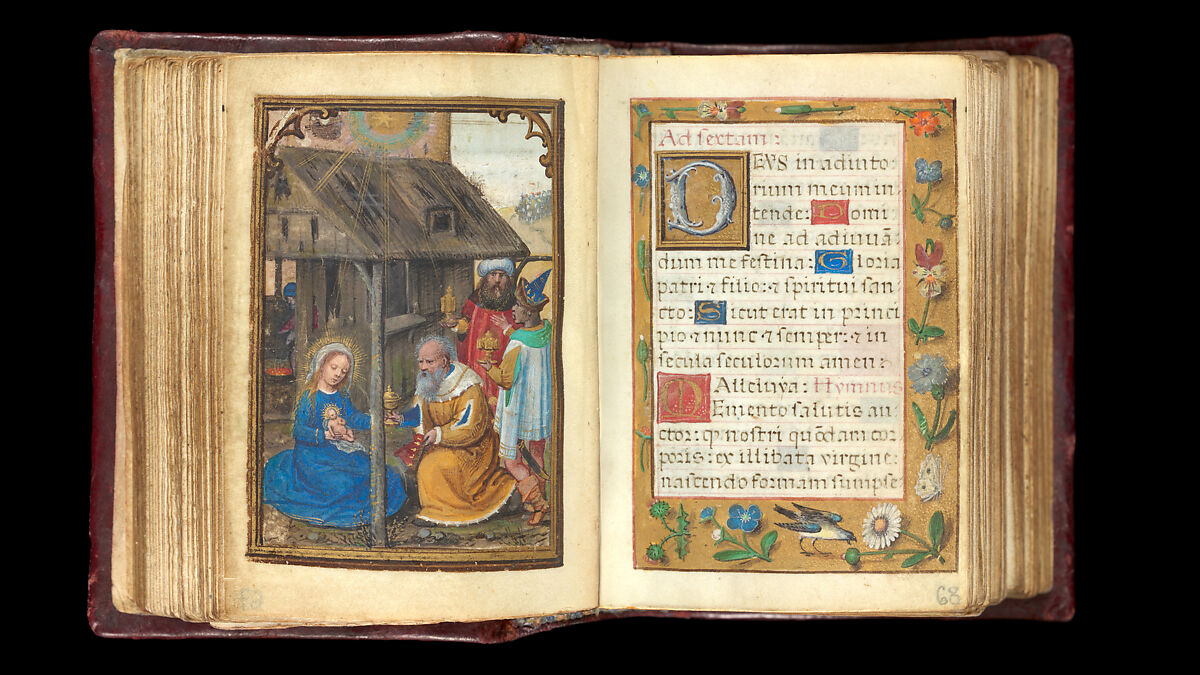 Ad sextam:
DEVS in adiuto-
rium meum in
tende: Domi-
ne ad adiuuā
dum me festina: Gloria
patri ⁊ filio: ⁊ spiritui san
cto: Sicut erat in princi
pio ⁊ nunc ⁊ semper: ⁊ in
secula seculorum amen:
Alleluya: Hymnus
Memento salutis au
ctor: ꝙ nostri quōdam cor
poris: ex illibata virgine:
nascendo formam sumpse
68